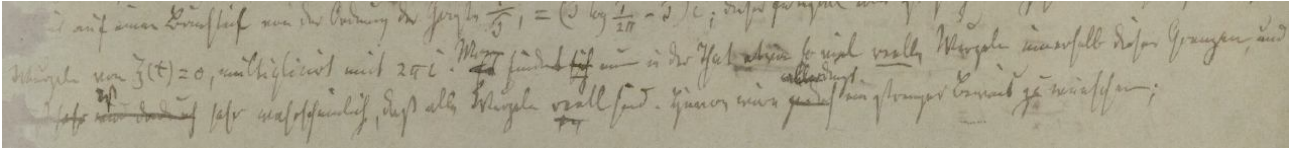 auf einen Bruchtheil von der Ordnung der Größe 1/T, = (T log T/2π − T) i; dieses Integral aber ist
Wurzeln von ξ(t) = 0, multiplicirt mit 2πi. Man findet nun in der That etwa so viel reelle Wurzeln innerhalb dieser Grenzen, und
ist sehr wahrscheinlich, daß alle Wurzeln reell sind. Hiervon wäre allerdings ein strenger Beweis zu wünschen;